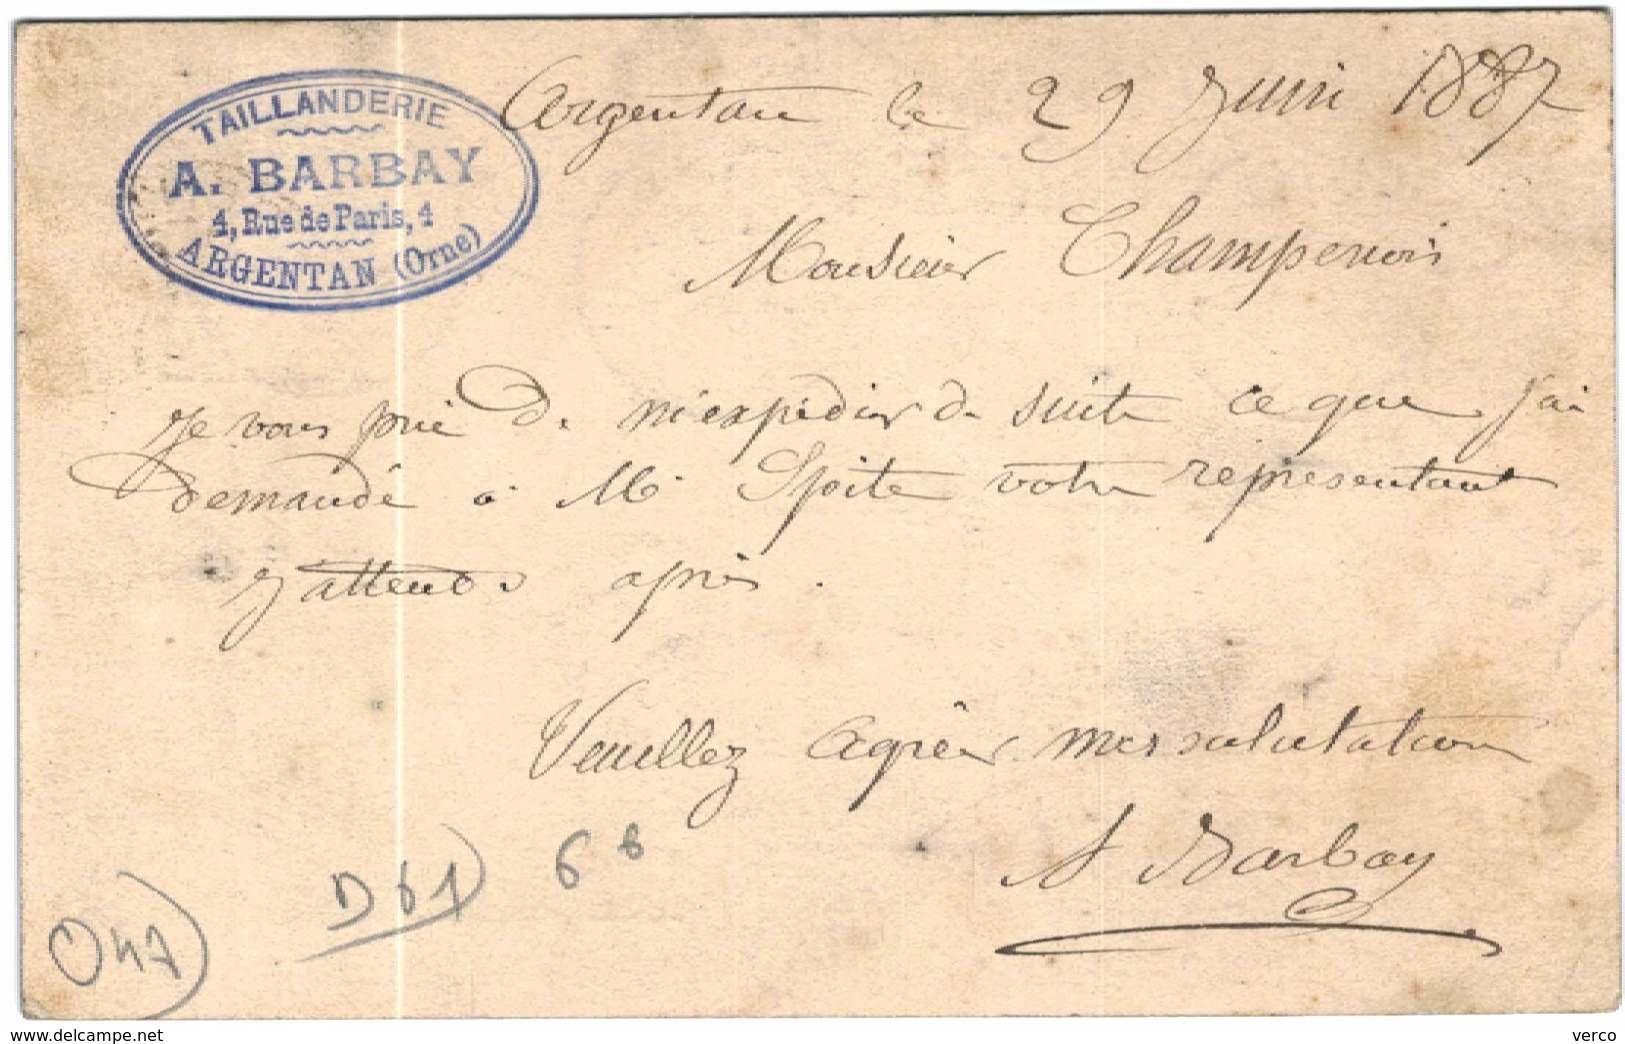 TAILLANDERIE
A. BARBAY
4, Rue de Paris, 4
ARGENTAN (Orne)
Argentan le 29 Juin 1887
Monsieur Champenois
Je vous prie de m'expédier de suite ce que j'ai
demandé à M. Spite votre representant
j'attends après.
Veuillez agréer mes salutations
A Barbay
D61) 6 6
O47)
www.delcampe.net
verco